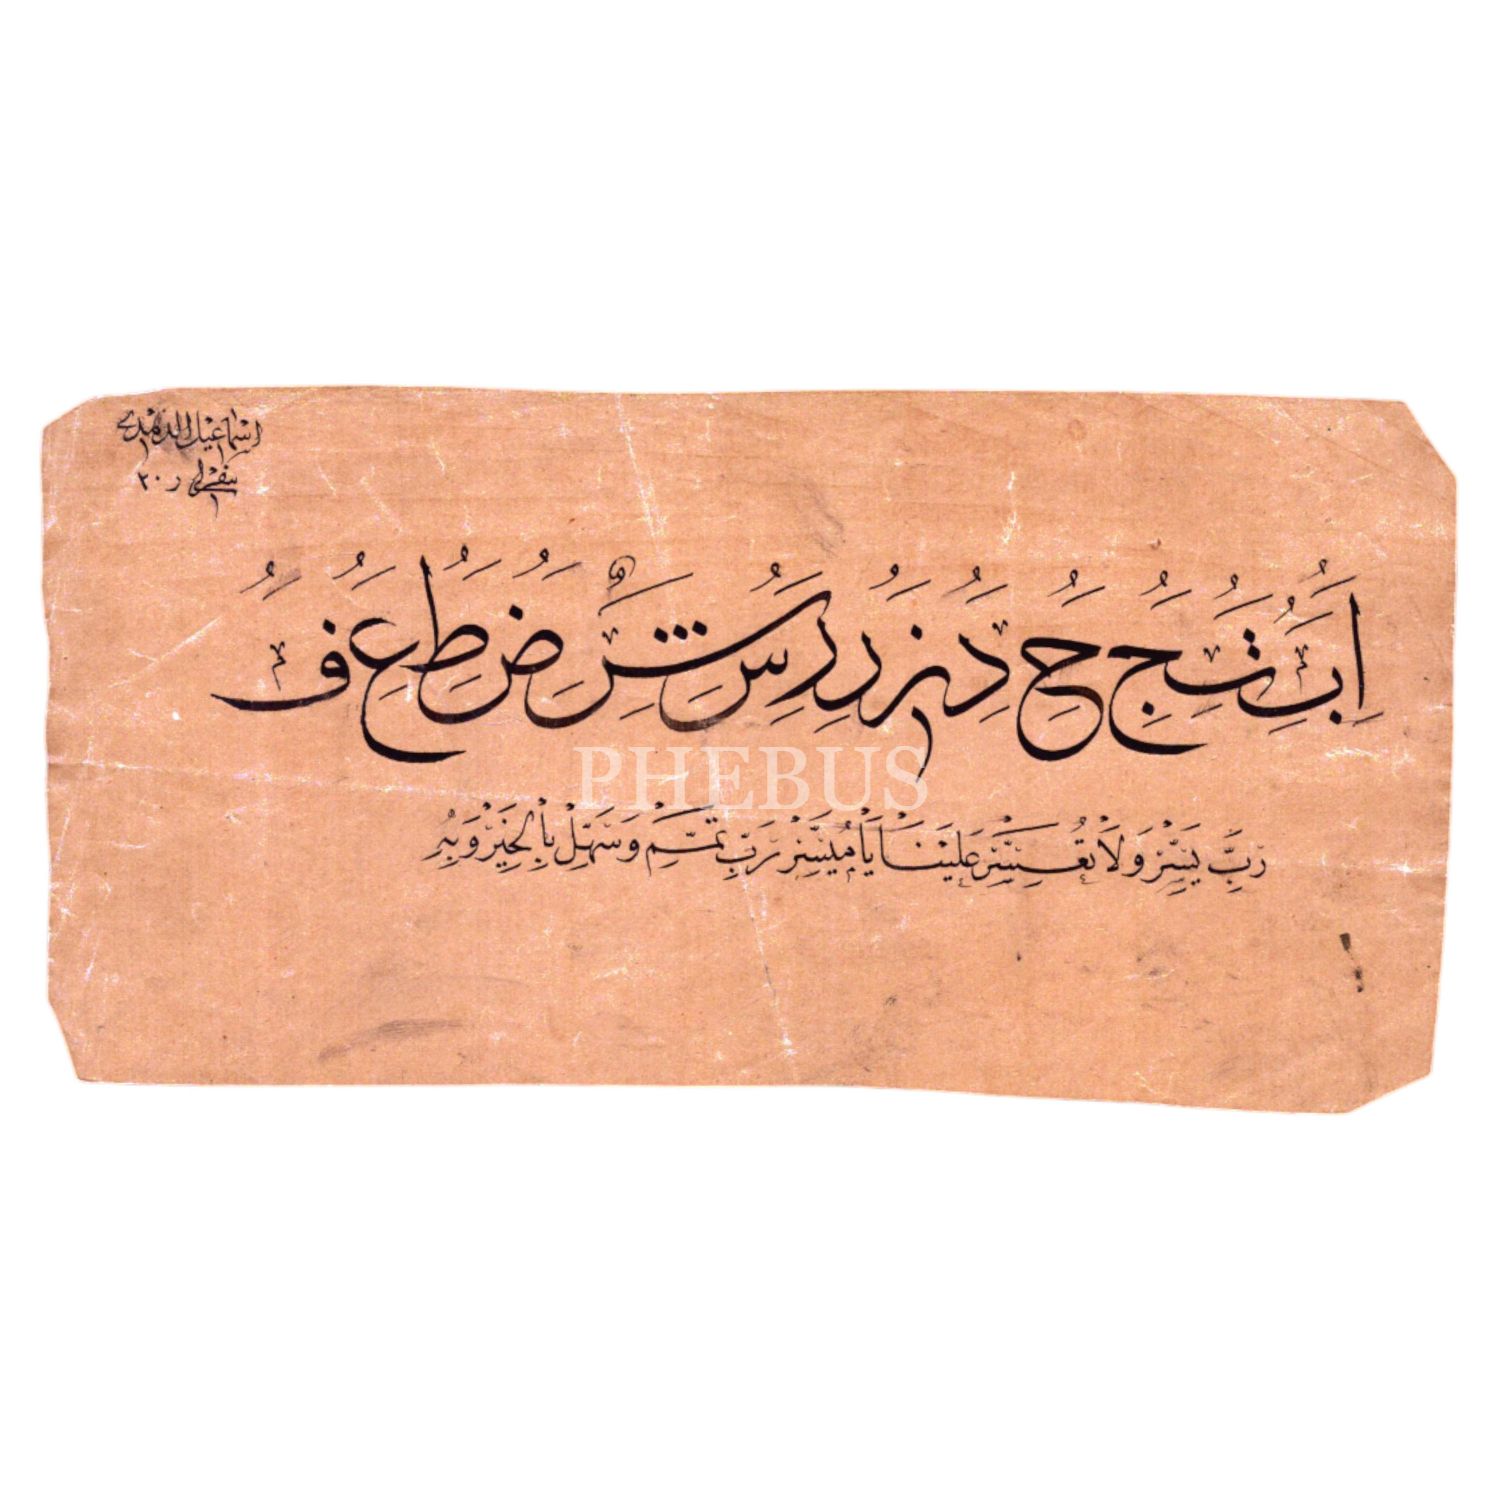 اسماعيل الزهدي
٢٠
اَ بَ تَ جَ حَ دَ نَ رُ رِ سَ شَ ضَ طَ عَ فُ
PHEBUS
رَبِّ يَسِّرْ وَلَا تُعَسِّرْ عَلَيْنَا يَا مُيَسِّرْ رَبِّ تَمِّمْ وَسَهِّلْ بِالْخَيْرْ وَبِهِ